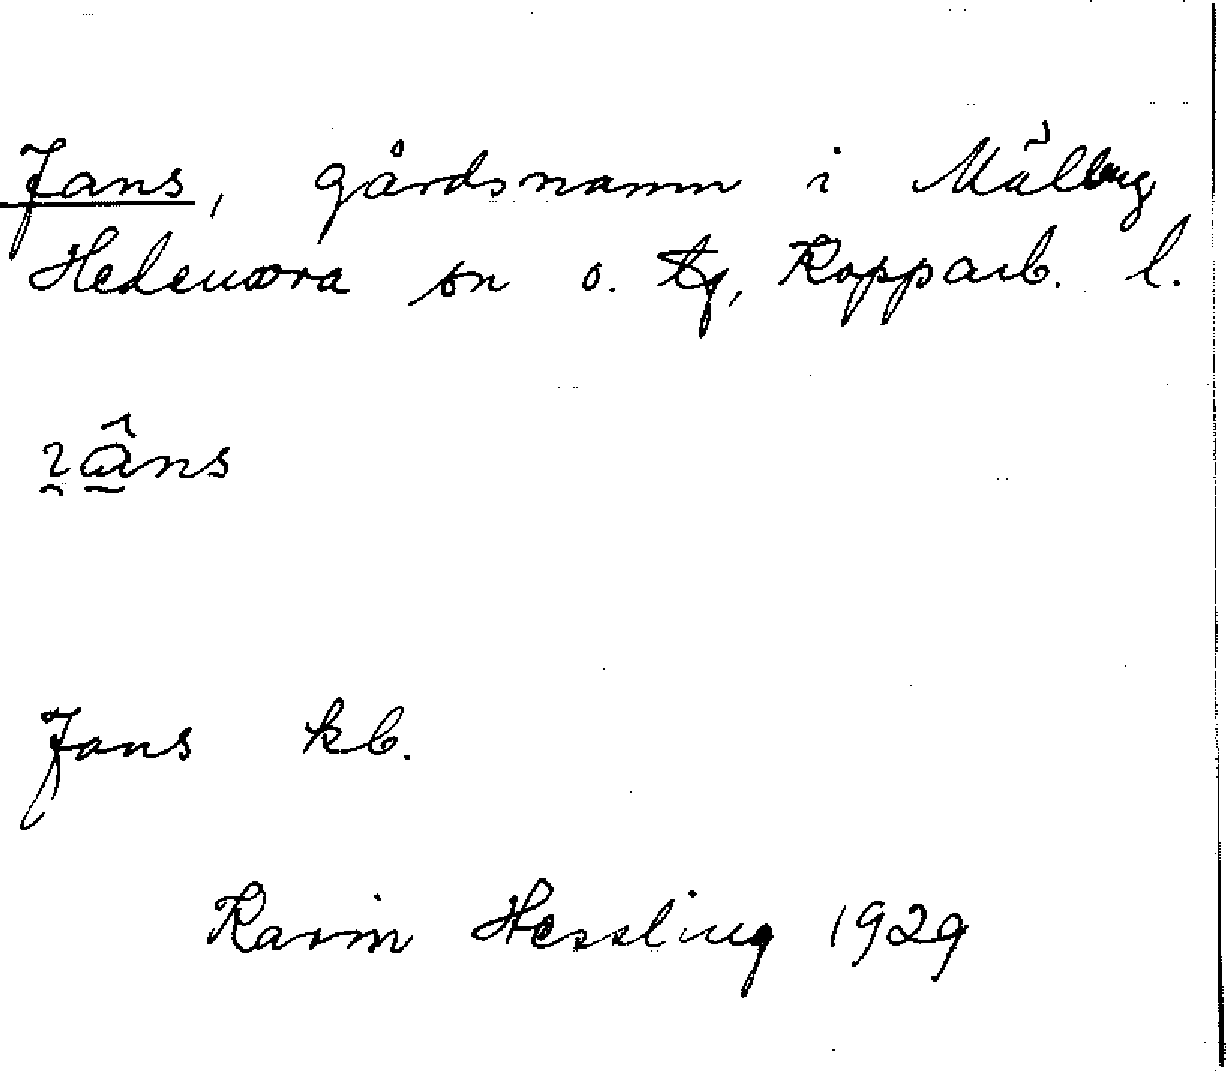 Jans, gårdsnamn i Mälby
Hedemora sn o. tg, Kopparb. l.
Jans kb.
Karin Hessling 1929